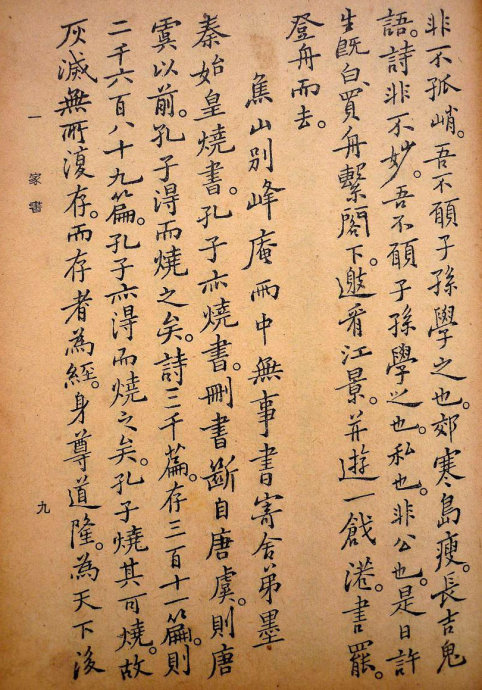 非不孤峭。吾不願子孫學之也。郊寒島瘦。長吉鬼
語。詩非不妙。吾不願子孫學之也。私也。非公也。是日許
生既白買舟繫閣下。邀看江景。并遊一戧港。書罷。
登舟而去。
焦山別峰庵雨中無事書寄舍弟墨
秦始皇燒書。孔子亦燒書。刪書斷自唐虞。則唐
虞以前。孔子得而燒之矣。詩三千篇。存三百十一篇。則
二千六百八十九篇。孔子亦得而燒之矣。孔子燒其可燒。故
灰滅無所復存。而存者為經。身尊道隆。為天下後
一 家書
九